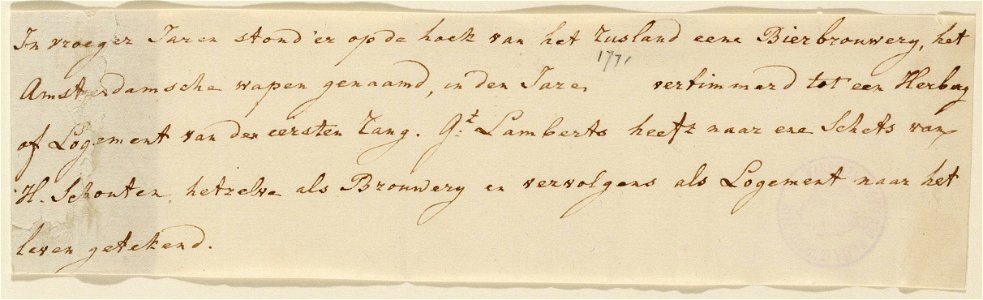 In vroeger Jaren stond 'er op de hoek van het Rusland eene Bierbrouwery, het
1771
Amsterdamsche wapen genaamd, in den Jare vertimmerd tot een Herberg
of Logement van den eersten Rang. G:t Lamberts heeft naar ene Schets van
H. Schouten hetzelve als Brouwery en vervolgens als Logement naar het
leven getekend.